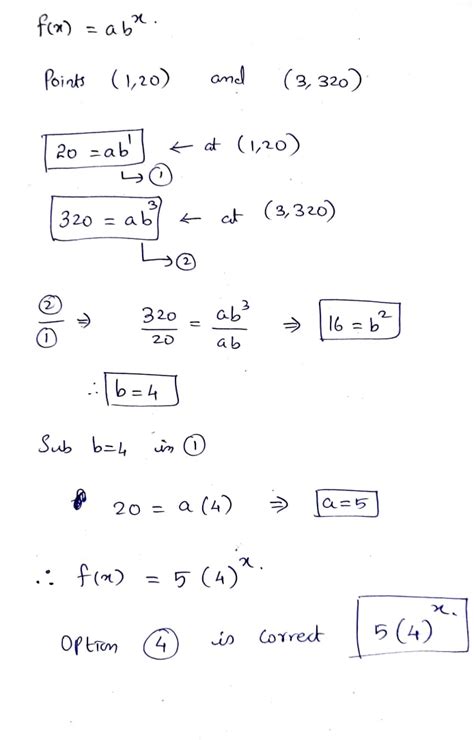 f(x) = abˣ.
Points (1,20) and (3,320)
20 = ab¹ ← at (1,20)
↳ ①
320 = ab³ ← at (3,320)
↳ ②
②/① ⇒ 320/20 = ab³/ab ⇒ 16 = b²
∴ b = 4
Sub b=4 in ①
20 = a(4) ⇒ a=5
∴ f(x) = 5(4)ˣ.
Option ④ is correct 5(4)ˣ.